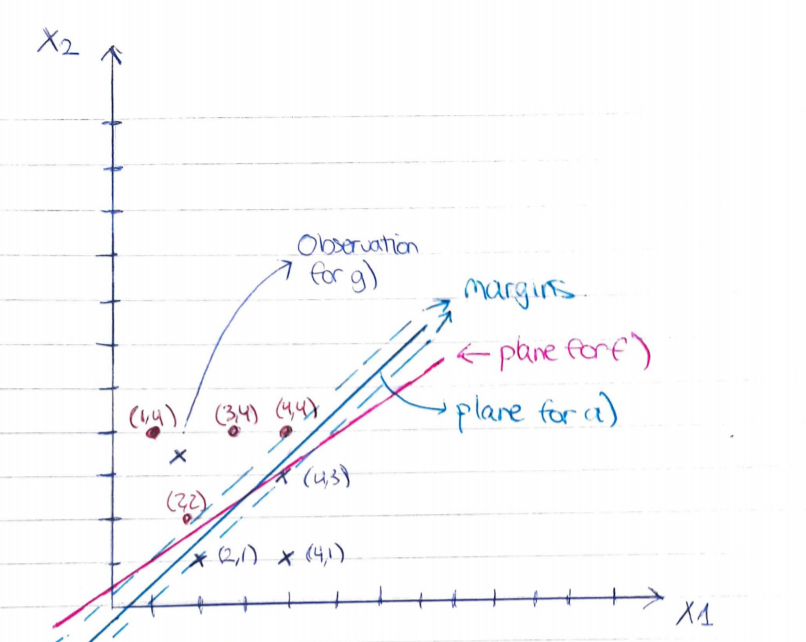 X2
Observation
for g)
margins.
← plane for f)
plane for a)
(1,4)
(3,4)
(4,4)
x
(4,3)
(2,2)
x (2,1)
x (4,1)
X1